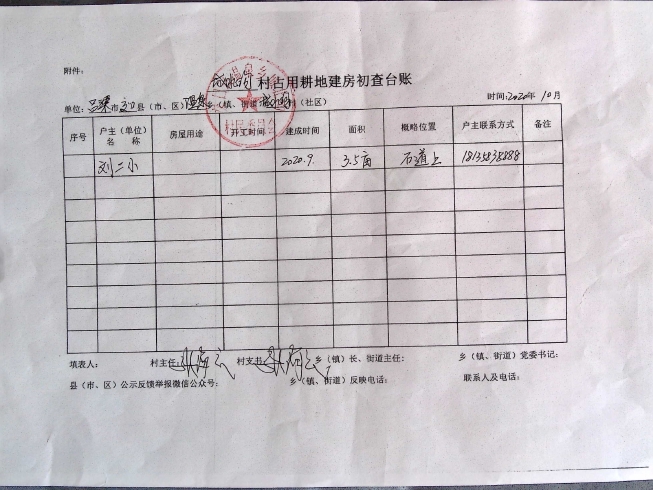 附件:
村占用耕地建房初查台账
单位: 吕梁市交口县(市、区)温泉乡(镇、街道) 村(社区) 时间: 2020年10月
序号 户主(单位)名称 房屋用途 开工时间 建成时间 面积 概略位置 户主联系方式 备注
刘二小 2020.9. 3.5亩 石道上
填表人: 村主任: 村支书: 乡(镇)长、街道主任: 乡(镇、街道)党委书记:
县(市、区)公示反馈举报微信公众号: 乡(镇、街道)反映电话: 联系人及电话: